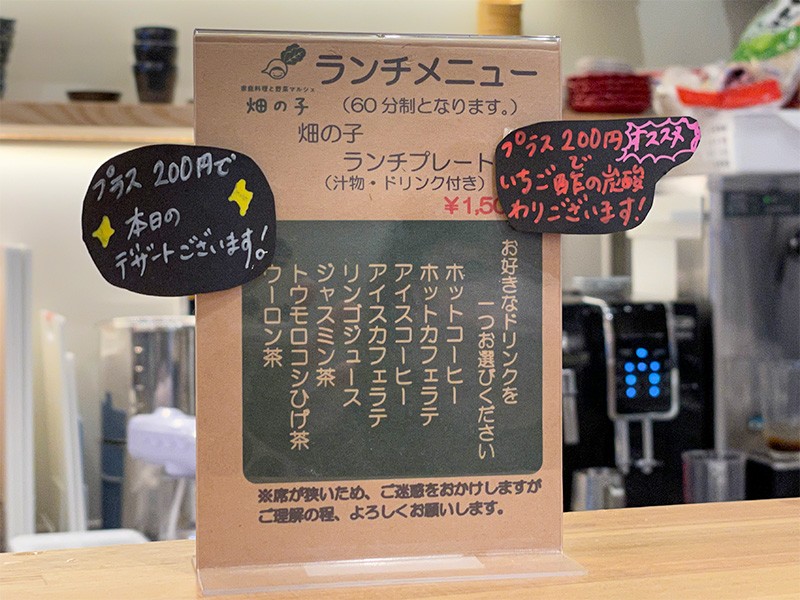 ランチメニュー
家庭料理と野菜マルシェ
畑の子
(60分制となります。)
畑の子
ランチプレート
(汁物・ドリンク付き)
¥1,50
プラス200円で
本日の
デザートございます!
プラス200円
オススメ
で
いちご酢の炭酸
わりございます!
お好きなドリンクを
一つお選びください
ホットコーヒー
ホットカフェラテ
アイスコーヒー
アイスカフェラテ
リンゴジュース
ジャスミン茶
トウモロコシひげ茶
ウーロン茶
※席が狭いため、ご迷惑をおかけしますが
ご理解の程、よろしくお願いします。